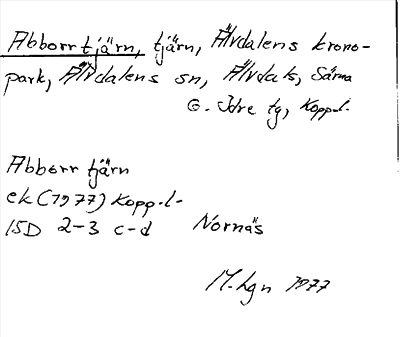 Abborrtjärn, tjärn, Älvdalens krono-
park, Älvdalens sn, Älvdals, Särna
o. Idre tg, Kopp.l.
Abborrtjärn
ek (1977) Kopp.l.
15D 2-3 c-d Nornäs
M. Lgn 1977